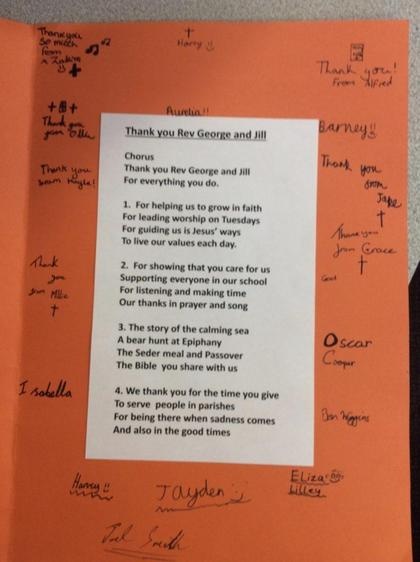 Thank you
So much
from
Harry
Thank you!
From Alfred
Thank you
from Ollie
Aurelia!!
Barney!!
Thank you Rev George and Jill
Chorus
Thank you Rev George and Jill
For everything you do.
1. For helping us to grow in faith
For leading worship on Tuesdays
For guiding us is Jesus' ways
To live our values each day.
2. For showing that you care for us
Supporting everyone in our school
For listening and making time
Our thanks in prayer and song
3. The story of the calming sea
A bear hunt at Epiphany
The Seder meal and Passover
The Bible you share with us
4. We thank you for the time you give
To serve people in parishes
For being there when sadness comes
And also in the good times
Thank you
from
Thank you
from
Jake
Thankyou
from Grace
Thank
you
from Millie
Oscar
Cooper
Isabella
Ben Higgins
Harvey!!
Jayden
Eliza
Lilley
Joel Smith